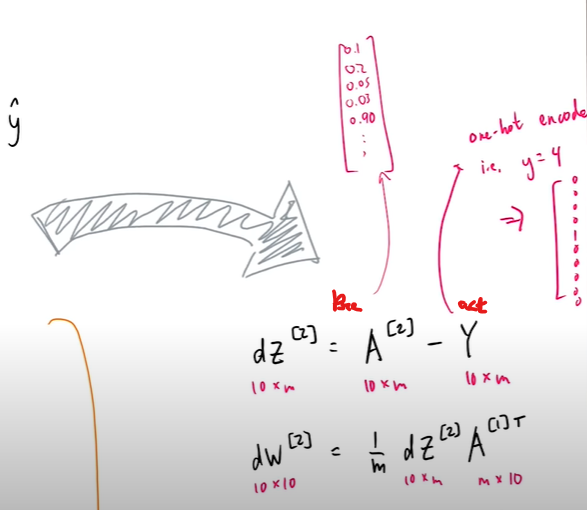 ŷ
0.1
0.2
0.05
0.03
0.90
⋮
one-hot encode
i.e. y=4
⇒
0
0
0
0
1
0
0
0
0
0
act
dZ^[2] = A^[2] - Y
10 × m 10 × m 10 × m
dW^[2] = 1/m dZ^[2] A^[1]T
10 × 10 10 × m m × 10